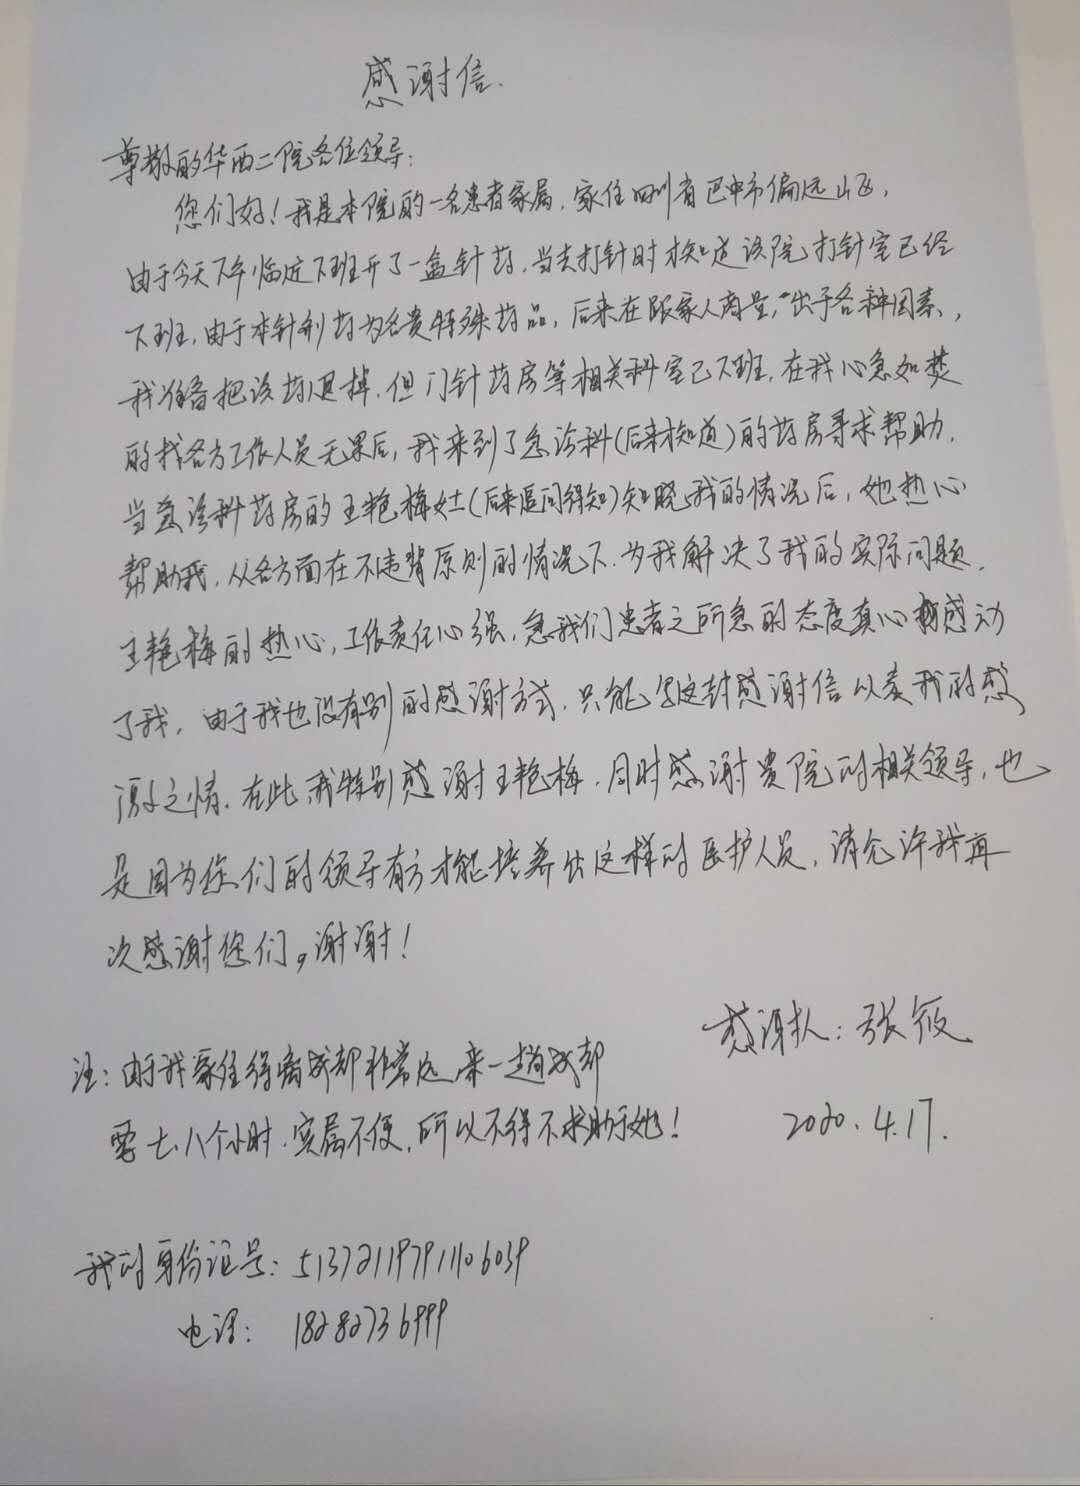 感谢信.
尊敬的华西二院各位领导：
您们好！我是本院的一名患者家属，家住四川省巴中市偏远山区，
由于今天下午临近下班开了一盒针药，当去打针时才知道该院打针室已经
下班，由于本针剂药为名贵特殊药品，后来在跟家人商量，出于各种因素，
我准备把该药退掉，但门针药房等相关科室已下班，在我心急如焚
的找各方工作人员无果后，我来到了急诊科(后来才知道)的药房寻求帮助，
当急诊科药房的王艳梅女士(后来追问得知)知晓我的情况后，她热心
帮助我，从各方面在不违背原则的情况下，为我解决了我的实际问题，
王艳梅的热心，工作责任心强，急我们患者之所急的态度真心感动
了我，由于我也没有别的感谢方式，只能写这封感谢信以表我的感
激之情，在此，我特别感谢王艳梅，同时感谢贵院的相关领导，也
是因为您们的领导有方才能培养出这样的医护人员，请允许我再
次感谢您们，谢谢！
感谢人：张筱
2020.4.17.
注：由于我家住得离成都非常远，来一趟成都
需七、八个小时，实属不便，所以不得不求助于她！
我的身份证号：513721197911106039
电话：18282736999